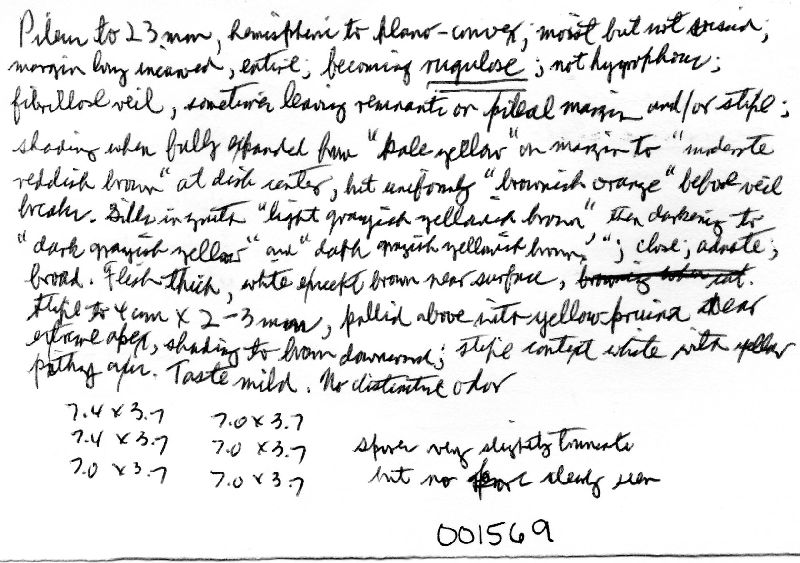 Pileus to 23 mm, hemispheric to plano-convex; moist but not viscid;
margin long incurved, entire; becoming rugulose; not hygrophous;
fibrillose veil, sometimes leaving remnants on pileal margin and/or stipe;
shading when fully expanded from "pale yellow" on margin to "moderate
reddish brown" at disk center, but uniformly "brownish orange" before veil
breaks. Gills in youth "light grayish yellowish brown", then darkening to
"dark grayish yellow" and "dark grayish yellowish brown"; close; adnate;
broad. Flesh thick, white except brown near surface, browning when cut.
Stipe to 4 cm x 2-3 mm, pallid above with yellow pruina near
extreme apex, shading to brown downward; stipe context white with yellow
pithy apex. Taste mild. No distinctive odor
7.4 x 3.7 7.0 x 3.7
7.4 x 3.7 7.0 x 3.7 spores very slightly truncate
7.0 x 3.7 7.0 x 3.7 but no pore clearly seen
001569